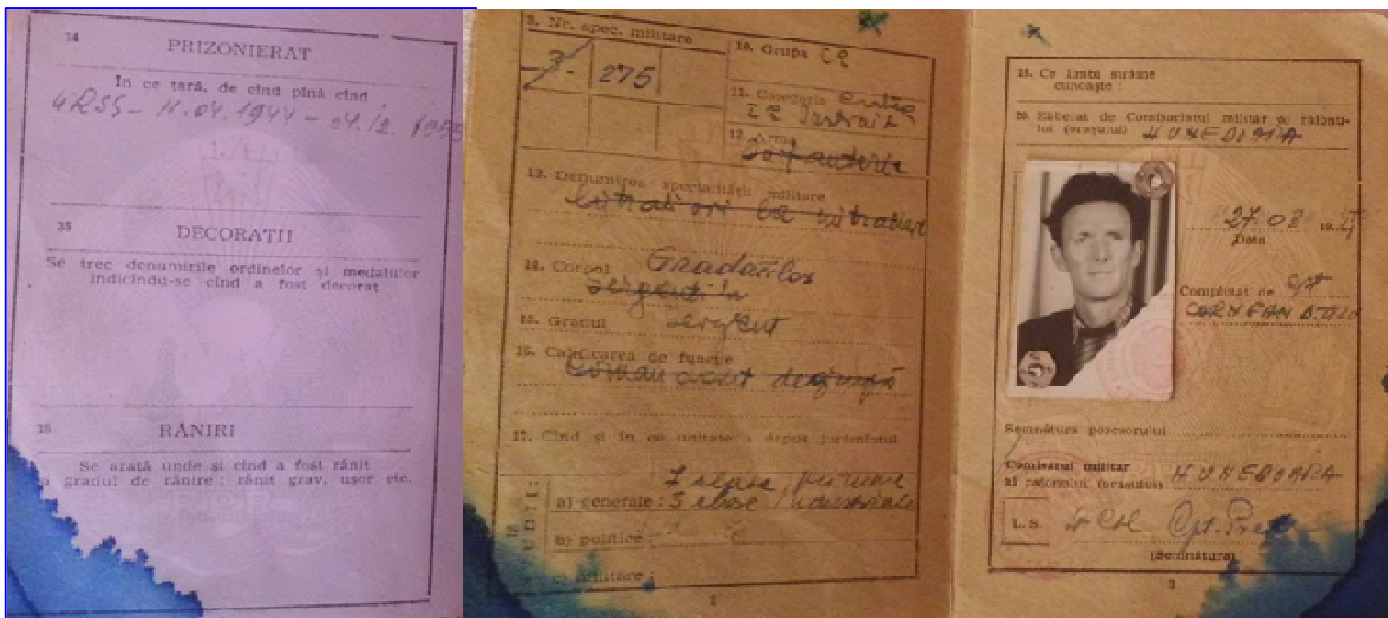 34
PRIZONIERAT
În ce țară, de cînd pînă cînd
URSS - 11.04.1944 - 04.12.
35
DECORAȚII
Se trec denumirile ordinelor și medaliilor
indicîndu-se cînd a fost decorat
36
RĂNIRI
Se arată unde și cînd a fost rănit
și gradul de rănire: rănit grav, ușor etc.
9. Nr. spec. militare
3- 275
10. Grupa
11. Categoria
12. Arma
Infanterie
13. Denumirea specialității militare
14. Corpul Gradaților
15. Gradul sergent
16. Calificarea de funcție
Comandant de grupă
17. Cînd și în ce unitate a depus jurămîntul
18
STUDII:
a) generale: 7 clase primare
3 clase industriale
b) politice:
c) militare:
19. Ce limbi străine
cunoaște:
20. Eliberat de Comisariatul militar al raionu-
lui (orașului) HUNEDOARA
27.02 19
Data
Completat de
Semnătura posesorului
Comisarul militar
al raionului (orașului) HUNEDOARA
L. S.
(Semnătura)
3